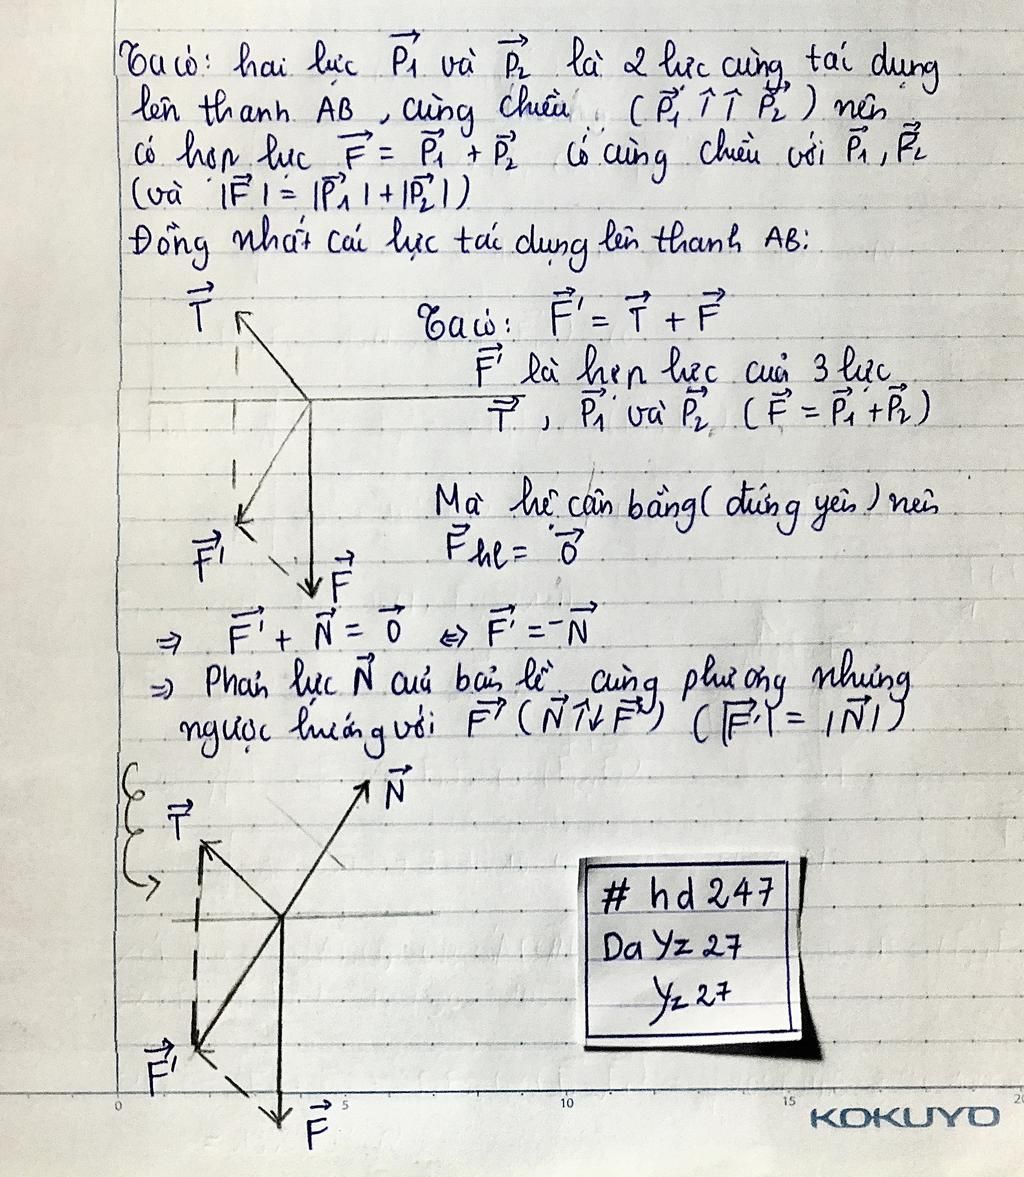 Ta có: hai lực P₁ và P₂ là 2 lực cùng tác dụng
lên thanh AB, cùng chiều (P₁ ↑↑ P₂) nên
có hợp lực F = P₁ + P₂ có cùng chiều với P₁, P₂
(và |F| = |P₁| + |P₂|)
Đồng nhất các lực tác dụng lên thanh AB:
T
Ta có: F' = T + F
F' là hợp lực của 3 lực
T, P₁ và P₂ (F = P₁ + P₂)
Mà hệ cân bằng (đứng yên) nên
F hl = 0
F'
F
⇒ F' + N = 0 ⇔ F' = -N
⇒ Phản lực N của bản lề cùng phương nhưng
ngược hướng với F' (N ↑↓ F') (|F'| = |N|)
N
T
# hd 247
Da Yz 27
Yz 27
F'
F
0 5 10 15 20
KOKUYO